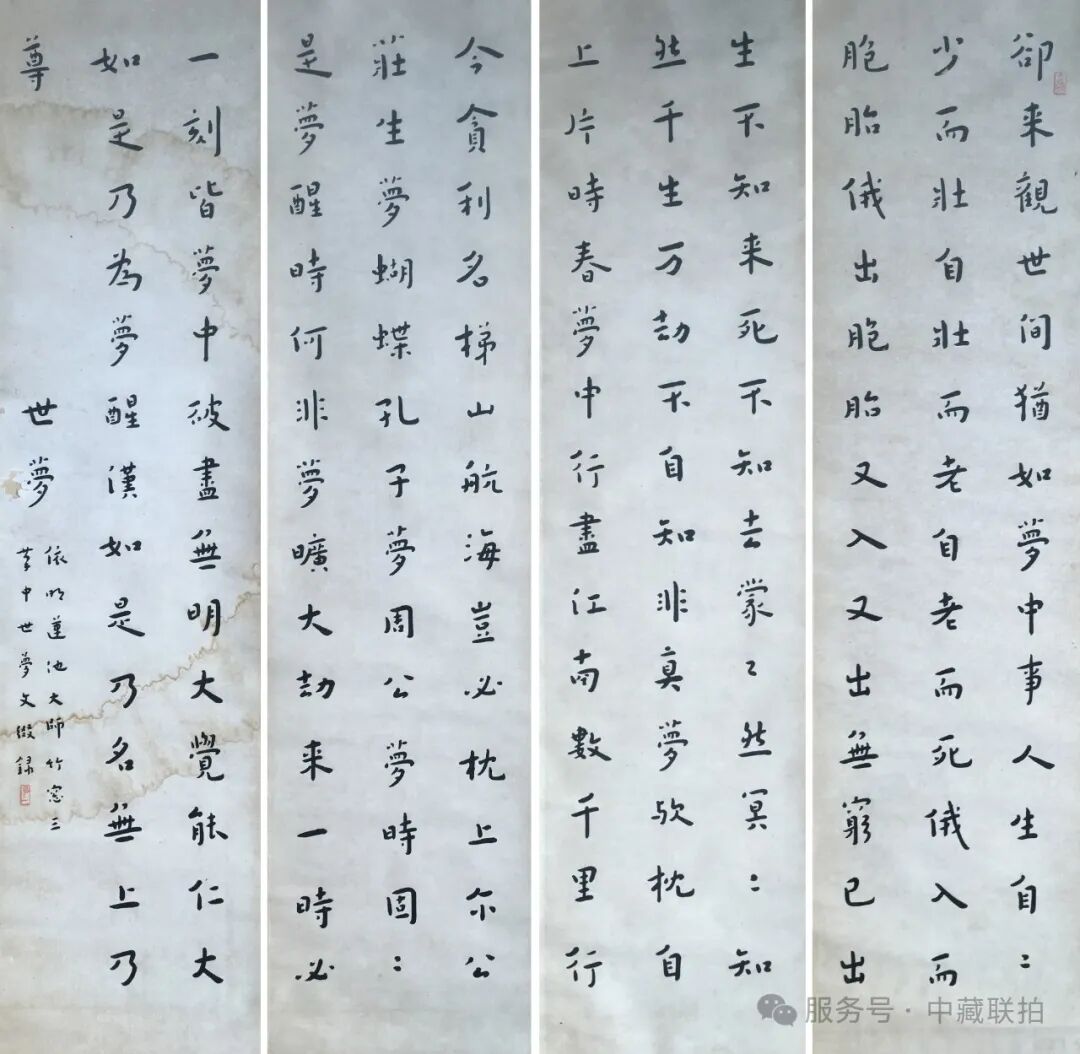 卻来觀世间猶如夢中事人生自〻
少而壮自壮而老自老而死俄入而
胞胎俄出胞胎又入又出無窮已出
生不知来死不知去蒙〻然冥〻知
然千生万劫不自知非真夢歟枕自
上片時春夢中行盡江南數千里行
今貪利名梯山航海豈必枕上尔公
莊生夢蝴蝶孔子夢周公夢時固〻
是夢醒時何非夢曠大劫来一時必
一刻皆夢中破盡無明大覺能仁大
如是乃為夢醒漢如是乃名無上乃
尊 世夢
依明蓮池大師竹窓三
中世夢文録
服务号·中藏联拍